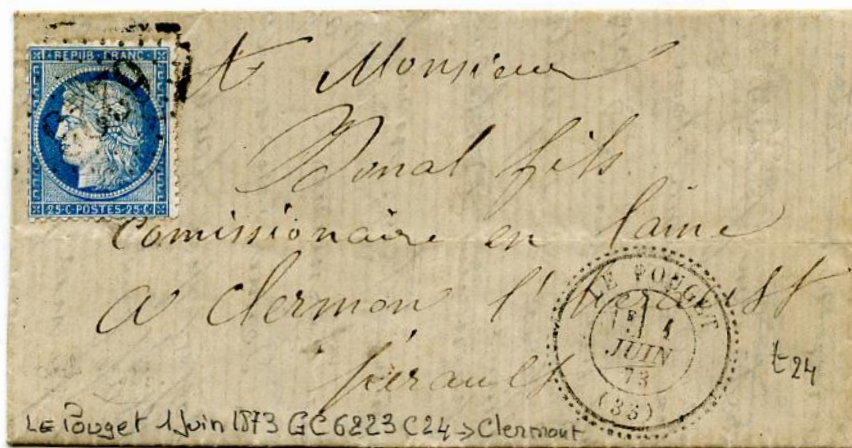 REPUB·FRANC
25·C·POSTES·25·C
A Monsieur
Bonal fils
Comissionaire en laine
a Clermon l'herault
herault
LE POUGET
1
JUIN
73
(33)
t24
LE Pouget 1 Juin 1873 GC 6223 C24 → Clermont